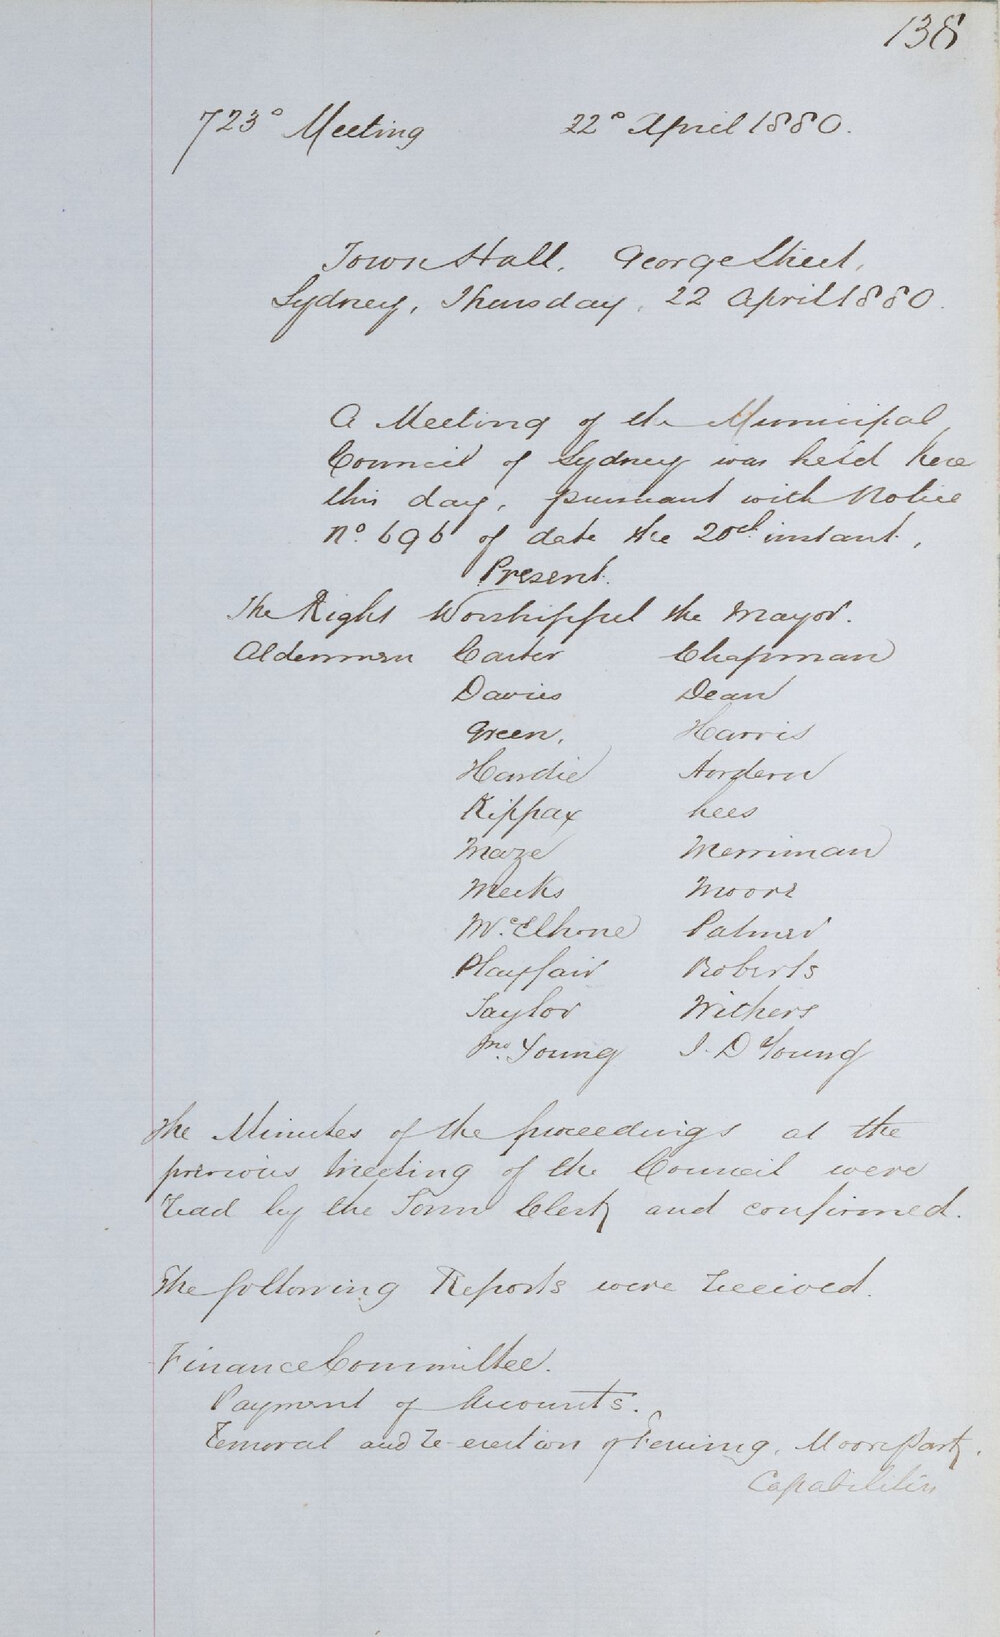 138
723° Meeting 22° April 1880.
Town Hall, George Street,
Sydney, Thursday, 22 April 1880.
A Meeting of the Municipal
Council of Sydney was held here
this day, pursuant with Notice
No. 696 of date the 20th instant,
Present.
The Right Worshipful the Mayor.
Aldermen Carter Chapman
Davies Dean
Green, Harris
Hardie Hordern
Kippax Lees
Maze Merriman
Meeks Moore
McElhone Palmer
Playfair Roberts
Taylor Withers
Jno. Young J. D Young
The Minutes of the proceedings at the
previous Meeting of the Council were
read by the Town Clerk and confirmed.
The following Reports were received.
Finance Committee.
Payment of Accounts.
Removal and re-erection of Fencing, Moore Park.
Capabilities